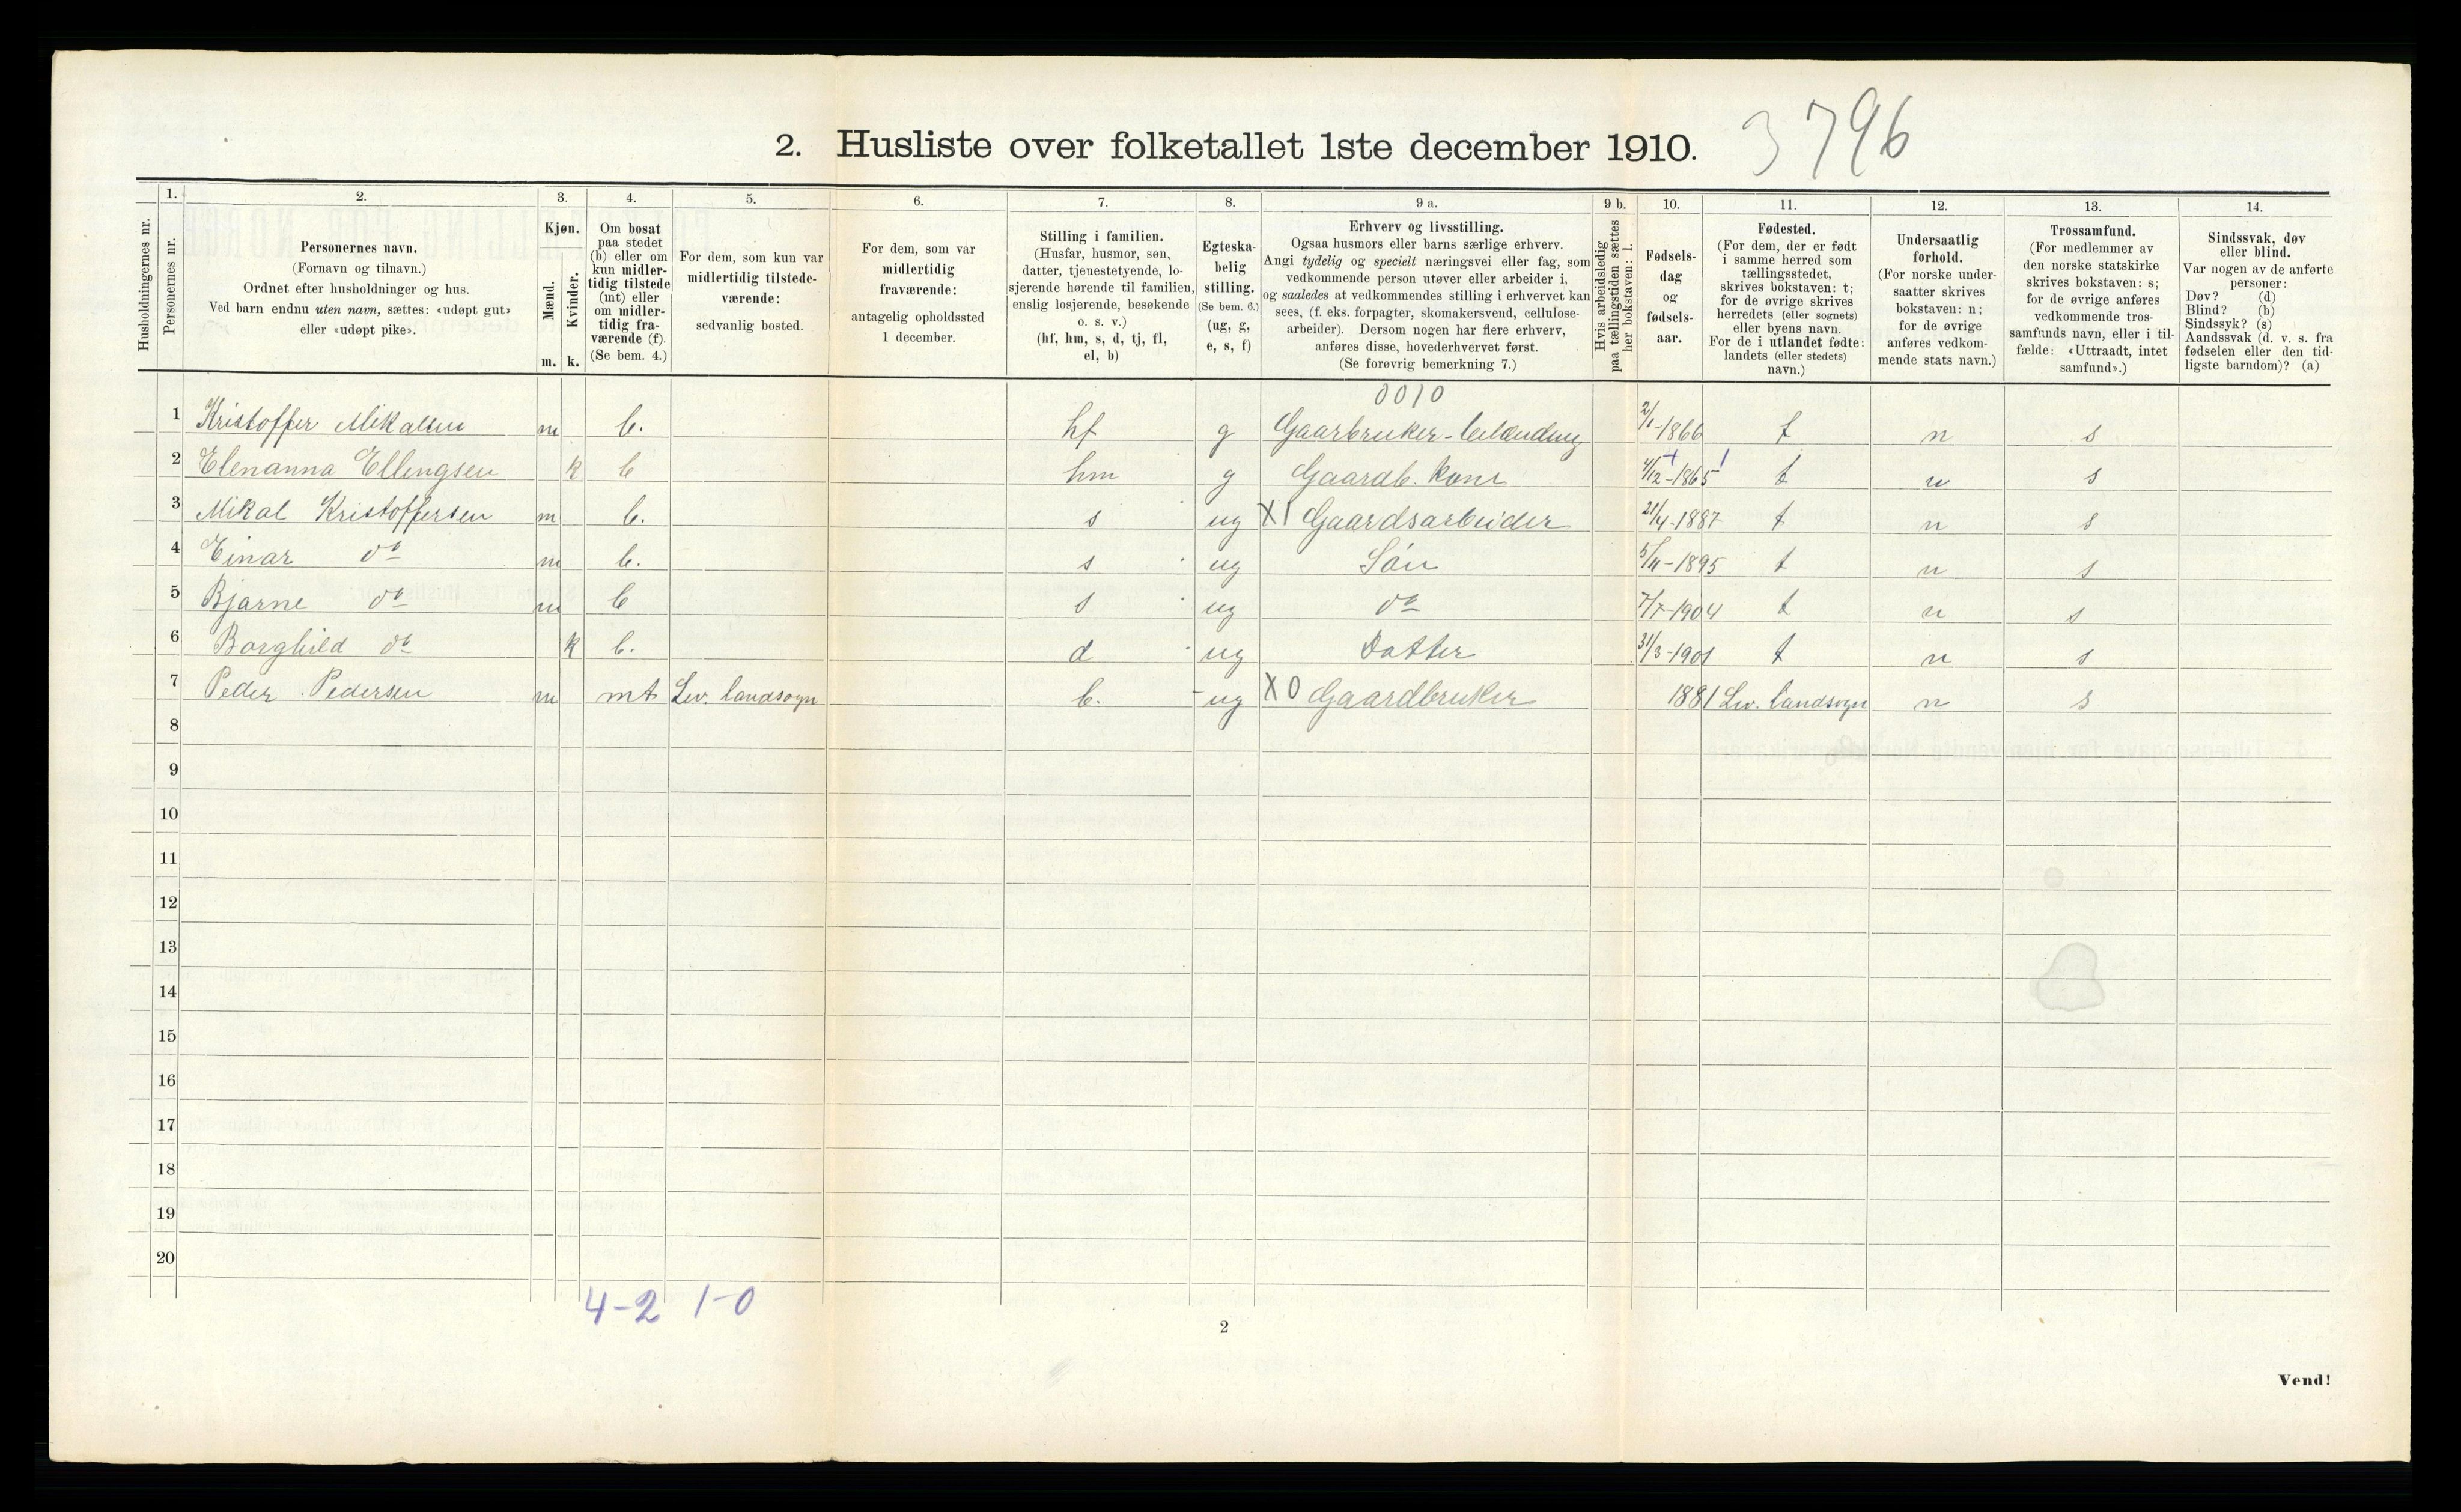 2. Husliste over folketallet 1ste december 1910. 3796
Husholdningernes nr.
1. Personernes nr.
2. Personernes navn. (Fornavn og tilnavn.) Ordnet efter husholdninger og hus. Ved barn endnu uten navn, sættes: «udøpt gut» eller «udøpt pike».
3. Kjøn. Mænd. m. Kvinder. k.
4. Om bosat paa stedet (b) eller om kun midlertidig tilstede (mt) eller om midlertidig fraværende (f). (Se bem. 4.)
5. For dem, som kun var midlertidig tilstedeværende: sedvanlig bosted.
6. For dem, som var midlertidig fraværende: antagelig opholdssted 1 december.
7. Stilling i familien. (Husfar, husmor, søn, datter, tjenestetyende, losjerende hørende til familien, enslig losjerende, besøkende o. s. v.) (hf, hm, s, d, tj, fl, el, b)
8. Egteskabelig stilling. (Se bem. 6.) (ug, g, e, s, f)
9 a. Erhverv og livsstilling. Ogsaa husmors eller barns særlige erhverv. Angi tydelig og specielt næringsvei eller fag, som vedkommende person utøver eller arbeider i, og saaledes at vedkommendes stilling i erhvervet kan sees, (f. eks. forpagter, skomakersvend, cellulosearbeider). Dersom nogen har flere erhverv, anføres disse, hovederhvervet først. (Se forøvrig bemerkning 7.)
9 b. Hvis arbeidsledig paa tællingstiden sættes her bokstaven: l.
10. Fødselsdag og fødselsaar.
11. Fødested. (For dem, der er født i samme herred som tællingsstedet, skrives bokstaven: t; for de øvrige skrives herredets (eller sognets) eller byens navn. For de i utlandet fødte: landets (eller stedets) navn.)
12. Undersaatlig forhold. (For norske undersaatter skrives bokstaven: n; for de øvrige anføres vedkommende stats navn.)
13. Trossamfund. (For medlemmer av den norske statskirke skrives bokstaven: s; for de øvrige anføres vedkommende trossamfunds navn, eller i tilfælde: «Uttraadt, intet samfund».)
14. Sindssvak, døv eller blind. Var nogen av de anførte personer: Døv? (d) Blind? (b) Sindssyk? (s) Aandssvak (d. v. s. fra fødselen eller den tidligste barndom)? (a)
0010
1 Kristoffer Mikalsen m b. hf g Gaarbruker-leilænding 2/1-1866 t n s
2 Elenanna Ellingsen k b hm g Gaardb. kone 4/12-1865 t n s
3 Mikal Kristoffersen m b. s ug X1 Gaardsarbeider 21/4-1887 t n s
4 Einar do m b. s ug Søn 5/11-1895 t n s
5 Bjarne do m b s ug do 7/7-1904 t n s
6 Borghild do k b. d ug Datter 31/3-1901 t n s
7 Peder Pedersen m mt Lev. landsogn b. ug X0 Gaardbruker 1881 Lev. landsogn n s
8
9
10
11
12
13
14
15
16
17
18
19
20
4-2 1-0
2
Vend!